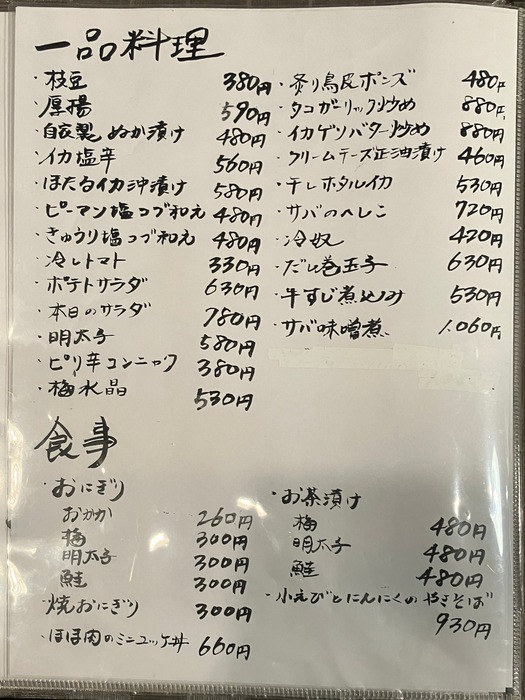 一品料理
・枝豆 380円
・厚揚 590円
・自家製 ぬか漬け 480円
・イカ塩辛 560円
・ほたるイカ沖漬け 580円
・ピーマン塩つぶ和え 480円
・きゅうり塩つぶ和え 480円
・冷しトマト 330円
・ポテトサラダ 630円
・本日のサラダ 780円
・明太子 580円
・ピリ辛コンニャク 380円
・梅水晶 530円
・炙り鳥皮ポンズ 480円
・タコガーリック炒め 880円
・イカゲソバター炒め 880円
・クリームチーズ正油漬け 460円
・干しホタルイカ 530円
・サバのへしこ 720円
・冷奴 420円
・だし巻玉子 630円
・牛すじ煮込み 530円
・サバ味噌煮 1.060円
食事
・おにぎり
おかか 260円
梅 300円
明太子 300円
鮭 300円
・焼おにぎり 300円
・ほほ肉のミニユッケ丼 660円
・お茶漬け
梅 480円
明太子 480円
鮭 480円
・小えびとにんにくのやきそば
930円